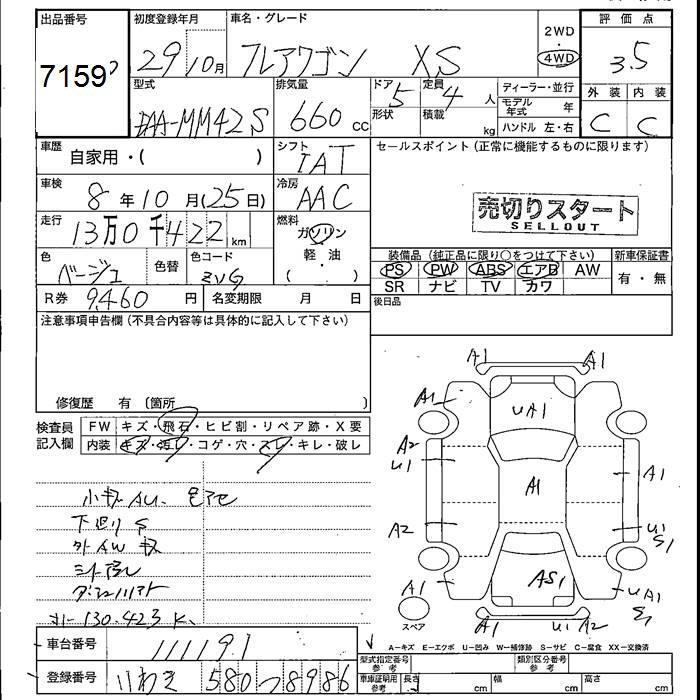 出品番号
7159
初度登録年月
29 10月
車名・グレード
フレアワゴン XS
2WD
4WD
評価点
3.5
型式
DAA-MM42S
排気量
660 cc
ドア 5
形状
定員 4 人
積載 kg
ディーラー・並行
モデル年式 年
ハンドル 左・右
外装 内装
C C
車歴
自家用・( )
シフト
IAT
セールスポイント(正常に機能するものに限ります)
車検
8年10月(25日)
冷房
AAC
売切りスタート
SELLOUT
走行
13万0千422 km
燃料
ガソリン
軽・油
( )
色
ベージュ
色替
色コード
ZVG
装備品(純正品に限り〇をつけて下さい)
新車保証書
PS PW ABS エアB AW
SR ナビ TV カワ
有・無
R券 9,460 円
名変期限 月 日
後日品
注意事項申告欄(不具合内容等は具体的に記入して下さい)
修復歴 有 〔箇所 〕
検査員記入欄
FW キズ・飛石・ヒビ割・リペア跡・X要
内装 キズ・汚レ・コゲ・穴・スレ・キレ・破レ
小キズAU.
下廻りS
外AWキズ
オー130.423K
A1 A1
A1
UA1
A2
U1
A1
A1
A2
U1
S1
A1
AS1
UA1
A1
U1 A2
スペア
A-キズ E-エクボ U-凹み W-補修跡 S-サビ C-腐食 XX-交換済
車台番号
111191
登録番号
いわき 580 つ 8986
型式指定番号
参考
類別区分番号
参考
車庫証明用
参考
長さ cm
幅 cm
高さ cm